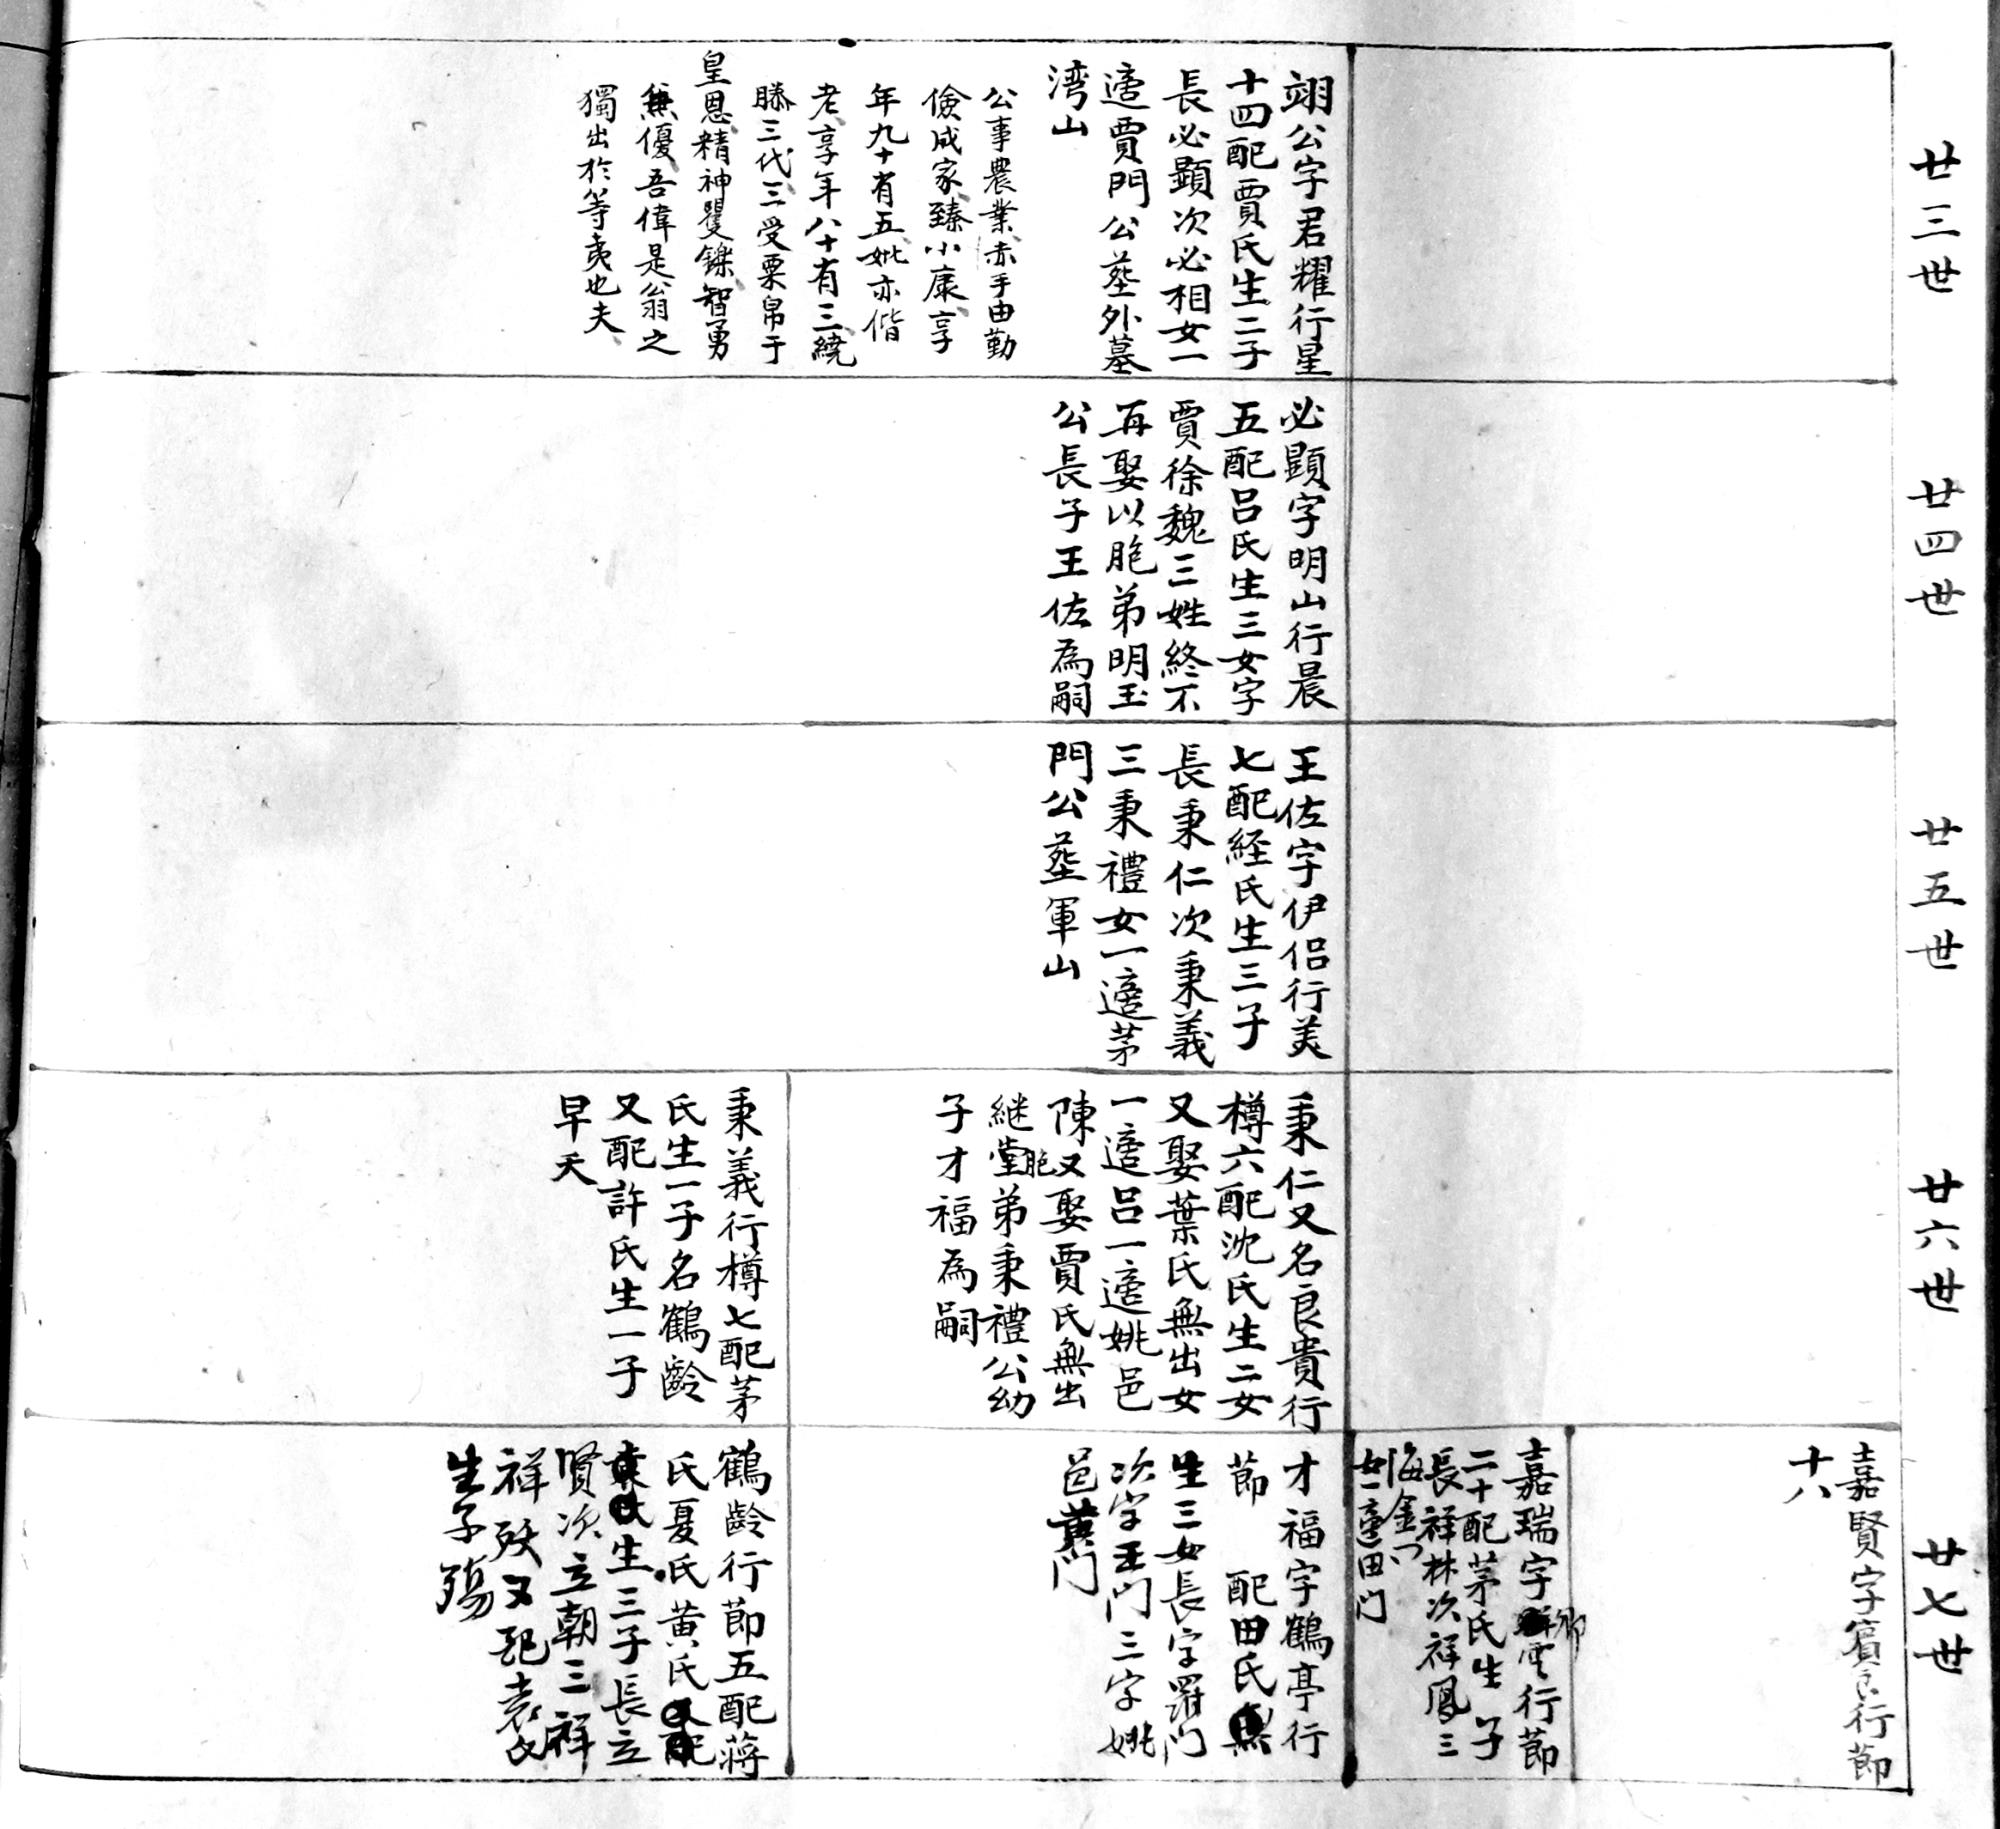 廿三世
翊公字君耀行星
十四配賈氏生二子
長必顕次必相女一
適賈門公塟外墓
湾山
公事農業赤手由勤
儉成家臻小康享
年九十有五妣亦偕
老享年八十有三繞
膝三代三受粟帛于
皇恩精神矍鑠智勇
無優吾偉是翁之
獨出於等夷也夫
廿四世
必顕字明山行晨
五配呂氏生三女字
賈徐魏三姓終不
再娶以胞弟明玉
公長子王佐為嗣
廿五世
王佐字伊侣行美
七配経氏生三子
長秉仁次秉義
三秉禮女一適茅
門公塟軍山
廿六世
秉仁又名良貴行
樽六配沈氏生二女
又娶葉氏無出女
一適呂一適姚邑
陳又娶賈氏無出
継堂胞弟秉禮公幼
子才福為嗣
秉義行樽七配茅
氏生一子名鶴齡
又配許氏生一子
早夭
廿七世
嘉賢字賓良行節
十八
嘉瑞字卿行節
二十配茅氏生子
長祥林次祥鳳三
海金门
女一適田门
才福字鶴亭行
節　配田氏
生三女長字羅门
次字王门三字姚
邑黄门
鶴齡行節五配蔣
氏夏氏黄氏
生三子長立
賢次立朝三祥
祥殀又配袁氏
生子殤